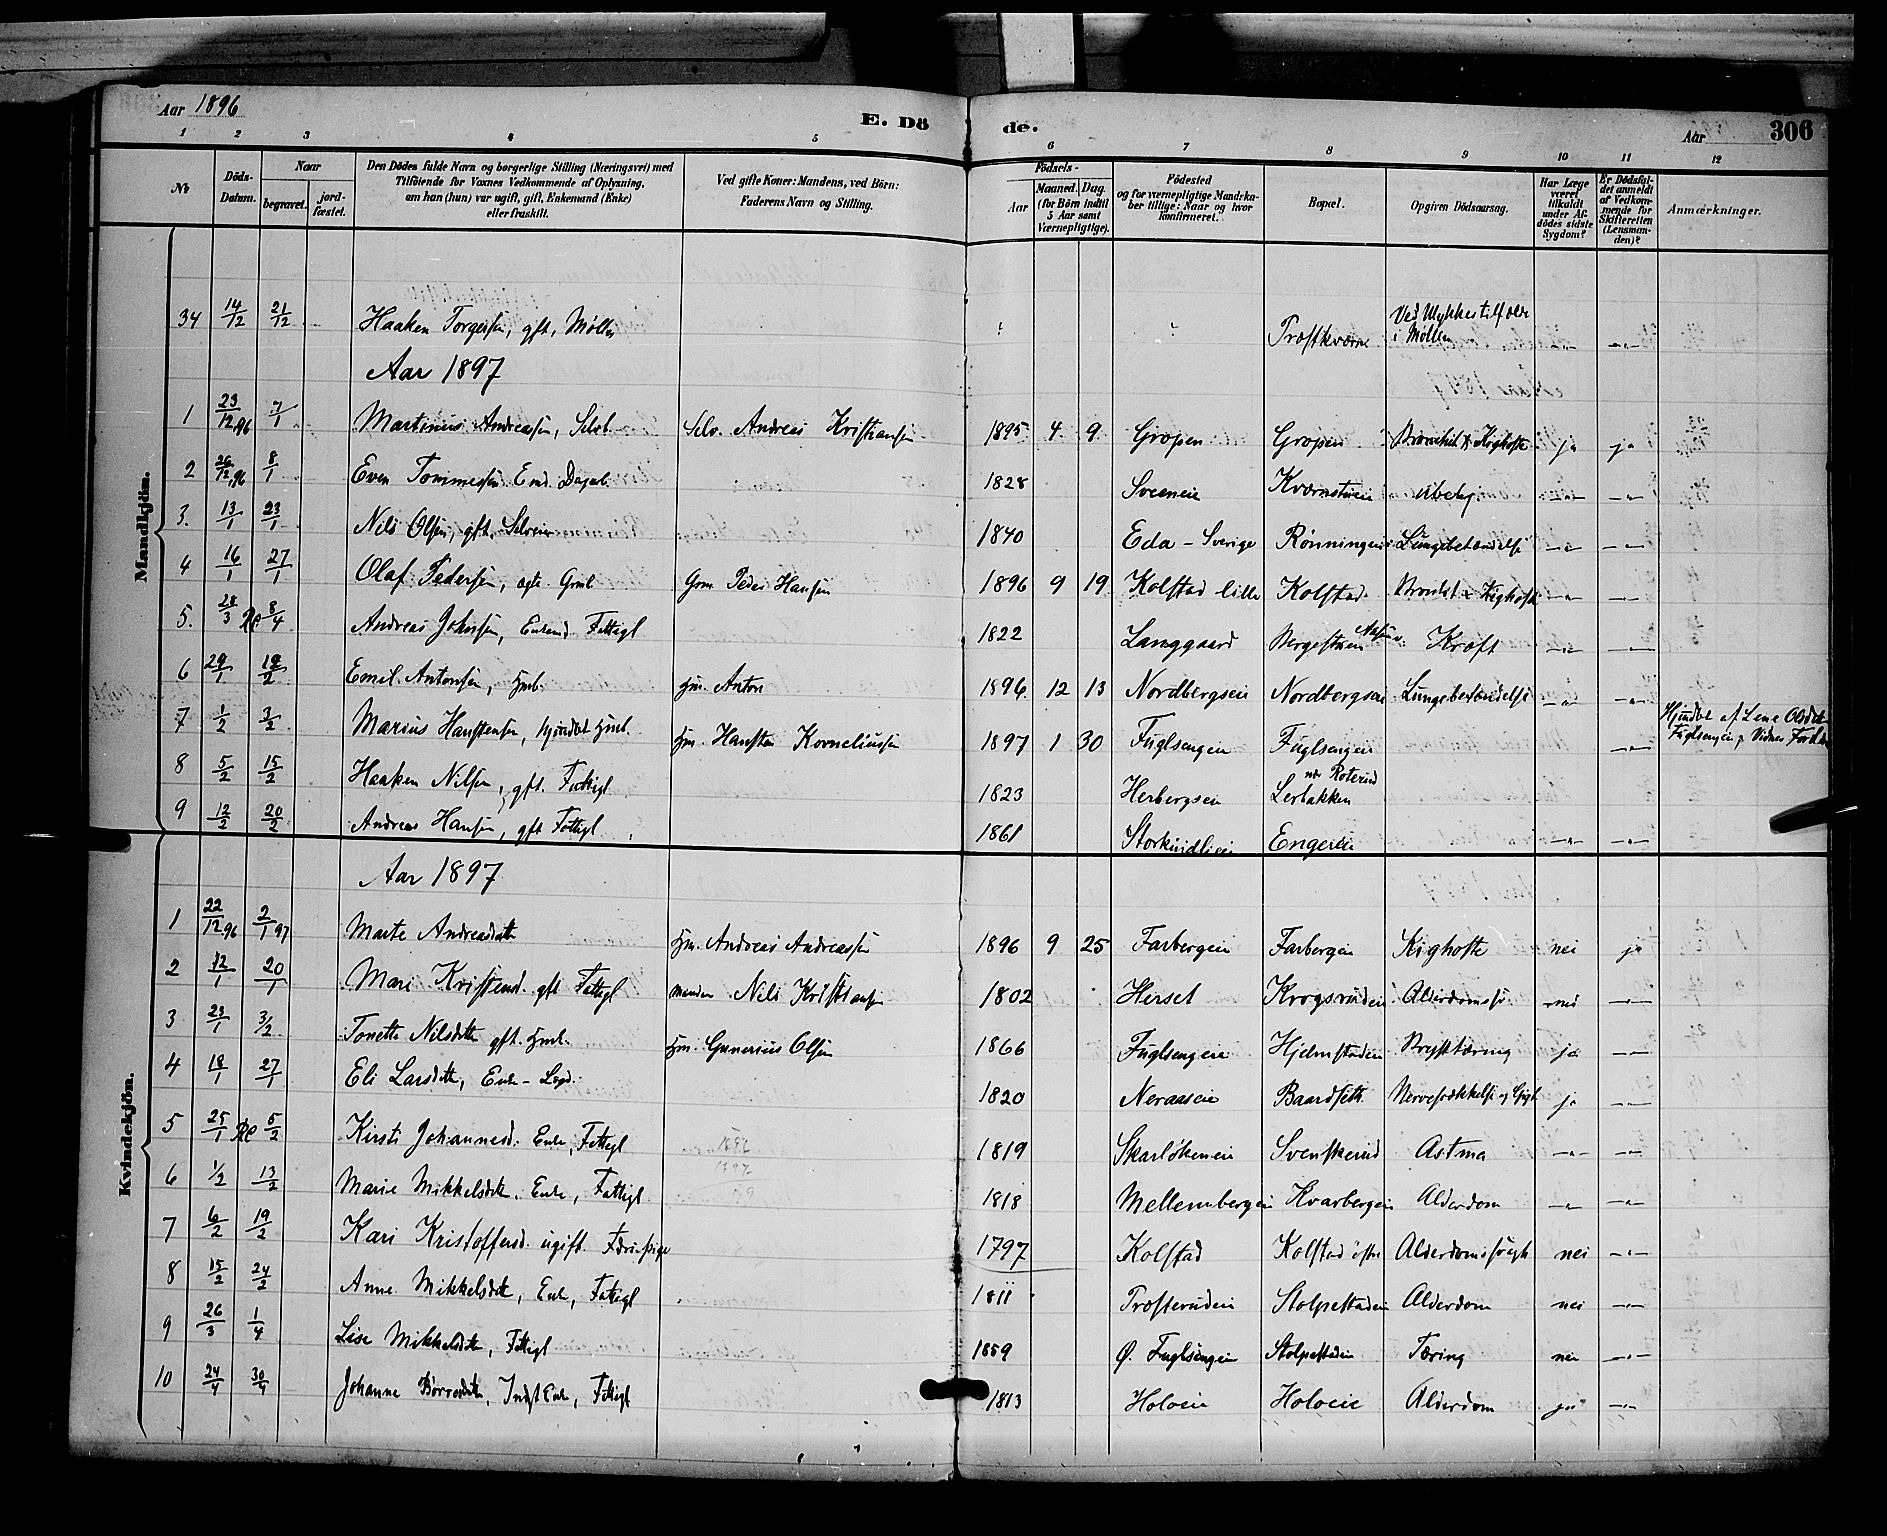 Aar 1896 E. Dö de. Aar 306
1 2 3 4 5 6 7 8 9 10 11 12
No
Döds-Datum.
Naar begravet. jordfæstet.
Den Dödes fulde Navn og borgerlige Stilling (Næringsvei) med Tilföiende for Voxnes Vedkommende af Oplysning, om han (hun) var ugift, gift, Enkemand (Enke) eller fraskilt.
Ved gifte Koner: Mandens, ved Börn: Faderens Navn og Stilling.
Födsels- Aar Maaned. Dag. (for Börn indtil 5 Aar samt Værnepligtige).
Födested og for værnepligtige Mandskaber tillige: Naar og hvor konfirmeret.
Bopæl.
Opgiven Dödsaarsag.
Har Læge været tilkaldt under Afdödes sidste Sygdom?
Er Dödsfaldet anmeldt af Vedkommende for Skifteretten (Lensmanden)?
Anmærkninger.
Mandkjön.
34 14/12 21/12 Haaken Torgersen, gft, Møller Træftkværne Ved Ulykkestilfælde i Møllen -"- -"-
Aar 1897
1 23/12 96 7/1 Martinus Andreassen, Selvb. Selv. Andreas Kristiansen 1895 4 9 Gropen Gropen Bronchit & Kighoste ja ja
2 26/12 96 8/1 Even Tommessen Enkd. Dagarb. 1828 Sveeneie Kværnstuen ubekj. -"- -"-
3. 13/1 23/1 Nils Olsen, gft. Selveier 1840 Eda - Sverige Rønningen Lungebetændelse -"- -"-
4 16/1 27/1 Olaf Pedersen, ægte Grmb Grm Peder Hansen 1896 9 19 Kolstad lille Kolstad Bronchit & Kighoste -"- -"-
5. 28/3 8/4 Andreas Johnsen, Enkemd. Fattigl 1822 Langgaard Bergestuen Kræft -"- -"-
6 29/1 12/2 Emil Antonsen, Hmb. Hm. Anton 1896 12 13 Nordbergseie Nordbergseie Lungebetændelse -"- -"-
7 1/2 3/2 Marius Hanstensen, hjemdøbt Hmb. Hm. Hansten Korneliussen 1897 1 30 Fuglsengen Fuglsengen -"- Hjmdøbt af Lene Olsdtr Fuglsengen,
8 5/2 15/2 Haaken Nilsen, gft. Fattigl 1823 Herbergseie Lerbakken ndr Roterud
9 12/2 20/2 Andreas Hansen, gft Fattigl 1861 Storkindlieie Engeneie -"- -"-
Kvindekjön.
Aar 1897
1 22/12 96 2/1 97 Marte Andreasdatter Hm. Andreas Andreassen 1896 9 25 Farbergeie Farbergeie Kighoste nei ja
2 12/1 20/1 Mari Kristensd. gft Fattigl manden Nils Kristiansen 1802 Herset Krogsruden Alderdomss nei -"-
3 23/1 3/2 Tonette Nilsdatter gft. Hmk. Hm. Gunerius Olsen 1866 Fuglsengeie Hjelmstaden Brysttæring ja -"-
4 18/1 27/1 Eli Larsdatter, Enke - Legd. 1820 Neraaseie Baardseth Nervesvækkelse og Gigt ja -"-
5 25/1 5/2 Kirsti Johannesd. Enke, Fattigl 1819 Skarløkeneie Svenskerud Astma -"- -"-
1897
1797
6 1/2 13/2 Marie Mikkelsdatter. Enke, Fattigl 1818 Mellembergeie Kvarbergeie Alderdom -"- -"-
7 6/2 19/2 Kari Kristoffersd. ugift 1797 Kolstad Kolstad østre Alderdomssvagh nei -"-
8 15/2 24/2 Anne Mikkelsdatter, Enke, Fattigl 1811 Træfteruden Stolpestaden Alderdom nei -"-
9 26/3 1/4 Lise Mikkelsdatter, Fattigl 1859 Ø. Fuglsengen Stolpestaden Tæring nei -"-
10 24/4 30/4 Johanne Børresdatter, Indst Enke, Fattigl 1813 Holoeie Holoeie Alderdom ja -"-